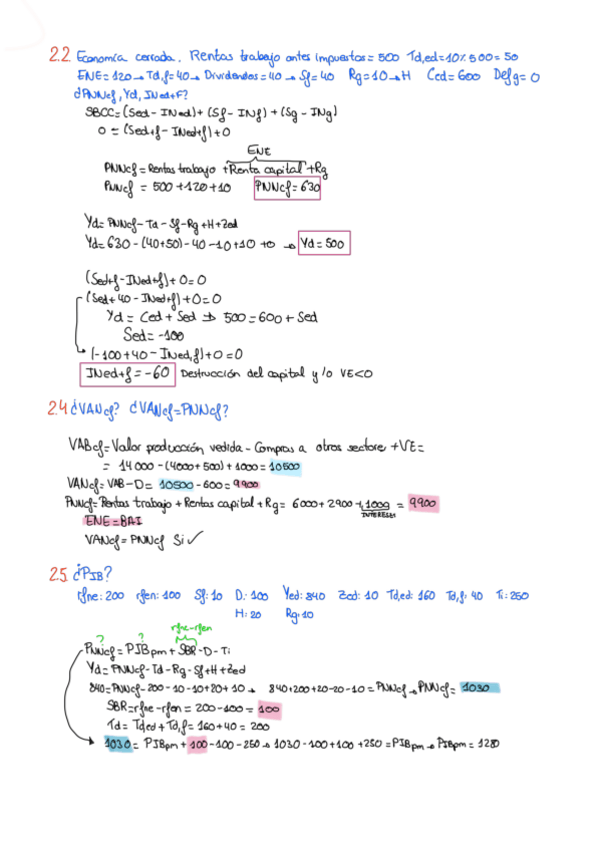 2.2 Economía cerrada. Rentas trabajo antes impuestos = 500 Td,ed=10% 500=50
ENE=120→Td,f=40→Dividendos=40→Sf=40 Rg=10→H Ced=600 Defg=0
¿PNNcf, Yd, INed+F?
SBCC=(Sed-INed)+(Sf-INf)+(Sg-INg)
0=(Sed+f-INed+f)+0
ENE
PNNcf=Rentas trabajo+Renta capital+Rg
PNNcf=500+120+10 PNNcf=630
Yd=PNNcf-Td-Sf-Rg+H+Zed
Yd=630-(40+50)-40-10+10+0→Yd=500
(Sed+f-INed+f)+0=0
(Sed+40-INed+f)+0=0
Yd=Ced+Sed⇒500=600+Sed
Sed=-100
(-100+40-INed,f)+0=0
INed+f=-60 Destrucción del capital y/o VE<0
2.4 ¿VANcf? ¿VANcf=PNNcf?
VABcf=Valor producción vedida-Compras a otros sectore+VE=
=14000-(4000+500)+1000=10500
VANcf=VAB-D=10500-600=9900
PNNcf=Rentas trabajo+Rentas capital+Rg=6000+2900+1000=9900
INTERESES
ENE=BAI
VANcf=PNNcf Si✓
2.5 ¿PIB?
rfne:200 rfen:100 Sf:10 D:100 Yed:840 Zed:10 Td,ed:160 Td,f:40 Ti:250
H:20 Rg:10
rfne-rfen
? ?
PNNcf=PIBpm+SBR-D-Ti
Yd=PNNcf-Td-Rg-Sf+H+Zed
840=PNNcf-200-10-10+20+10→840+200+20-20-10=PNNcf→PNNcf=1030
SBR=rfne-rfen=200-100=100
Td=Td,ed+Td,f=160+40=200
1030=PIBpm+100-100-250→1030-100+100+250=PIBpm→PIBpm=1280